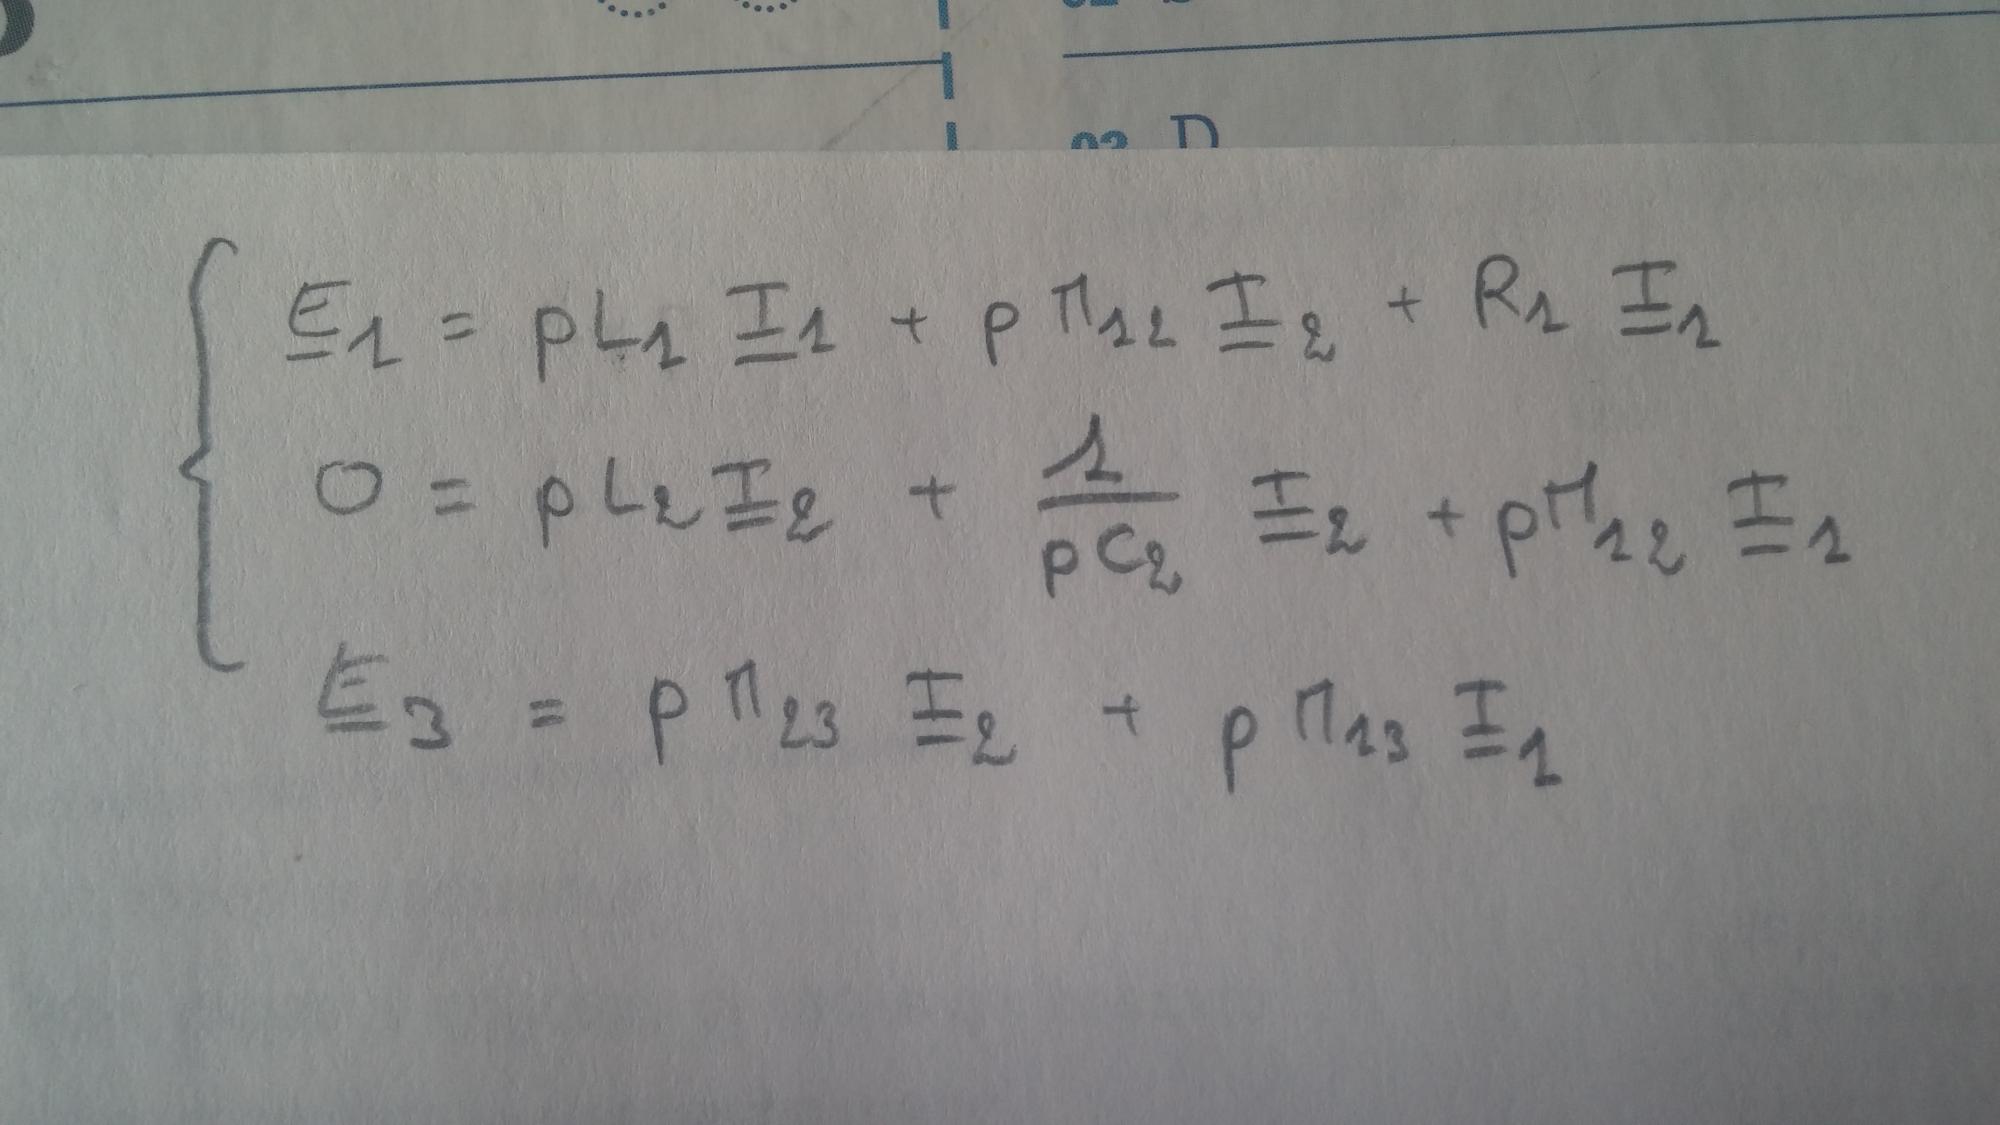 D
E̲1 = pL1 I̲1 + p M12 I̲2 + R1 I̲1
0 = pL2 I̲2 + 1/(pC2) I̲2 + pM12 I̲1
E̲3 = p M23 I̲2 + p M13 I̲1